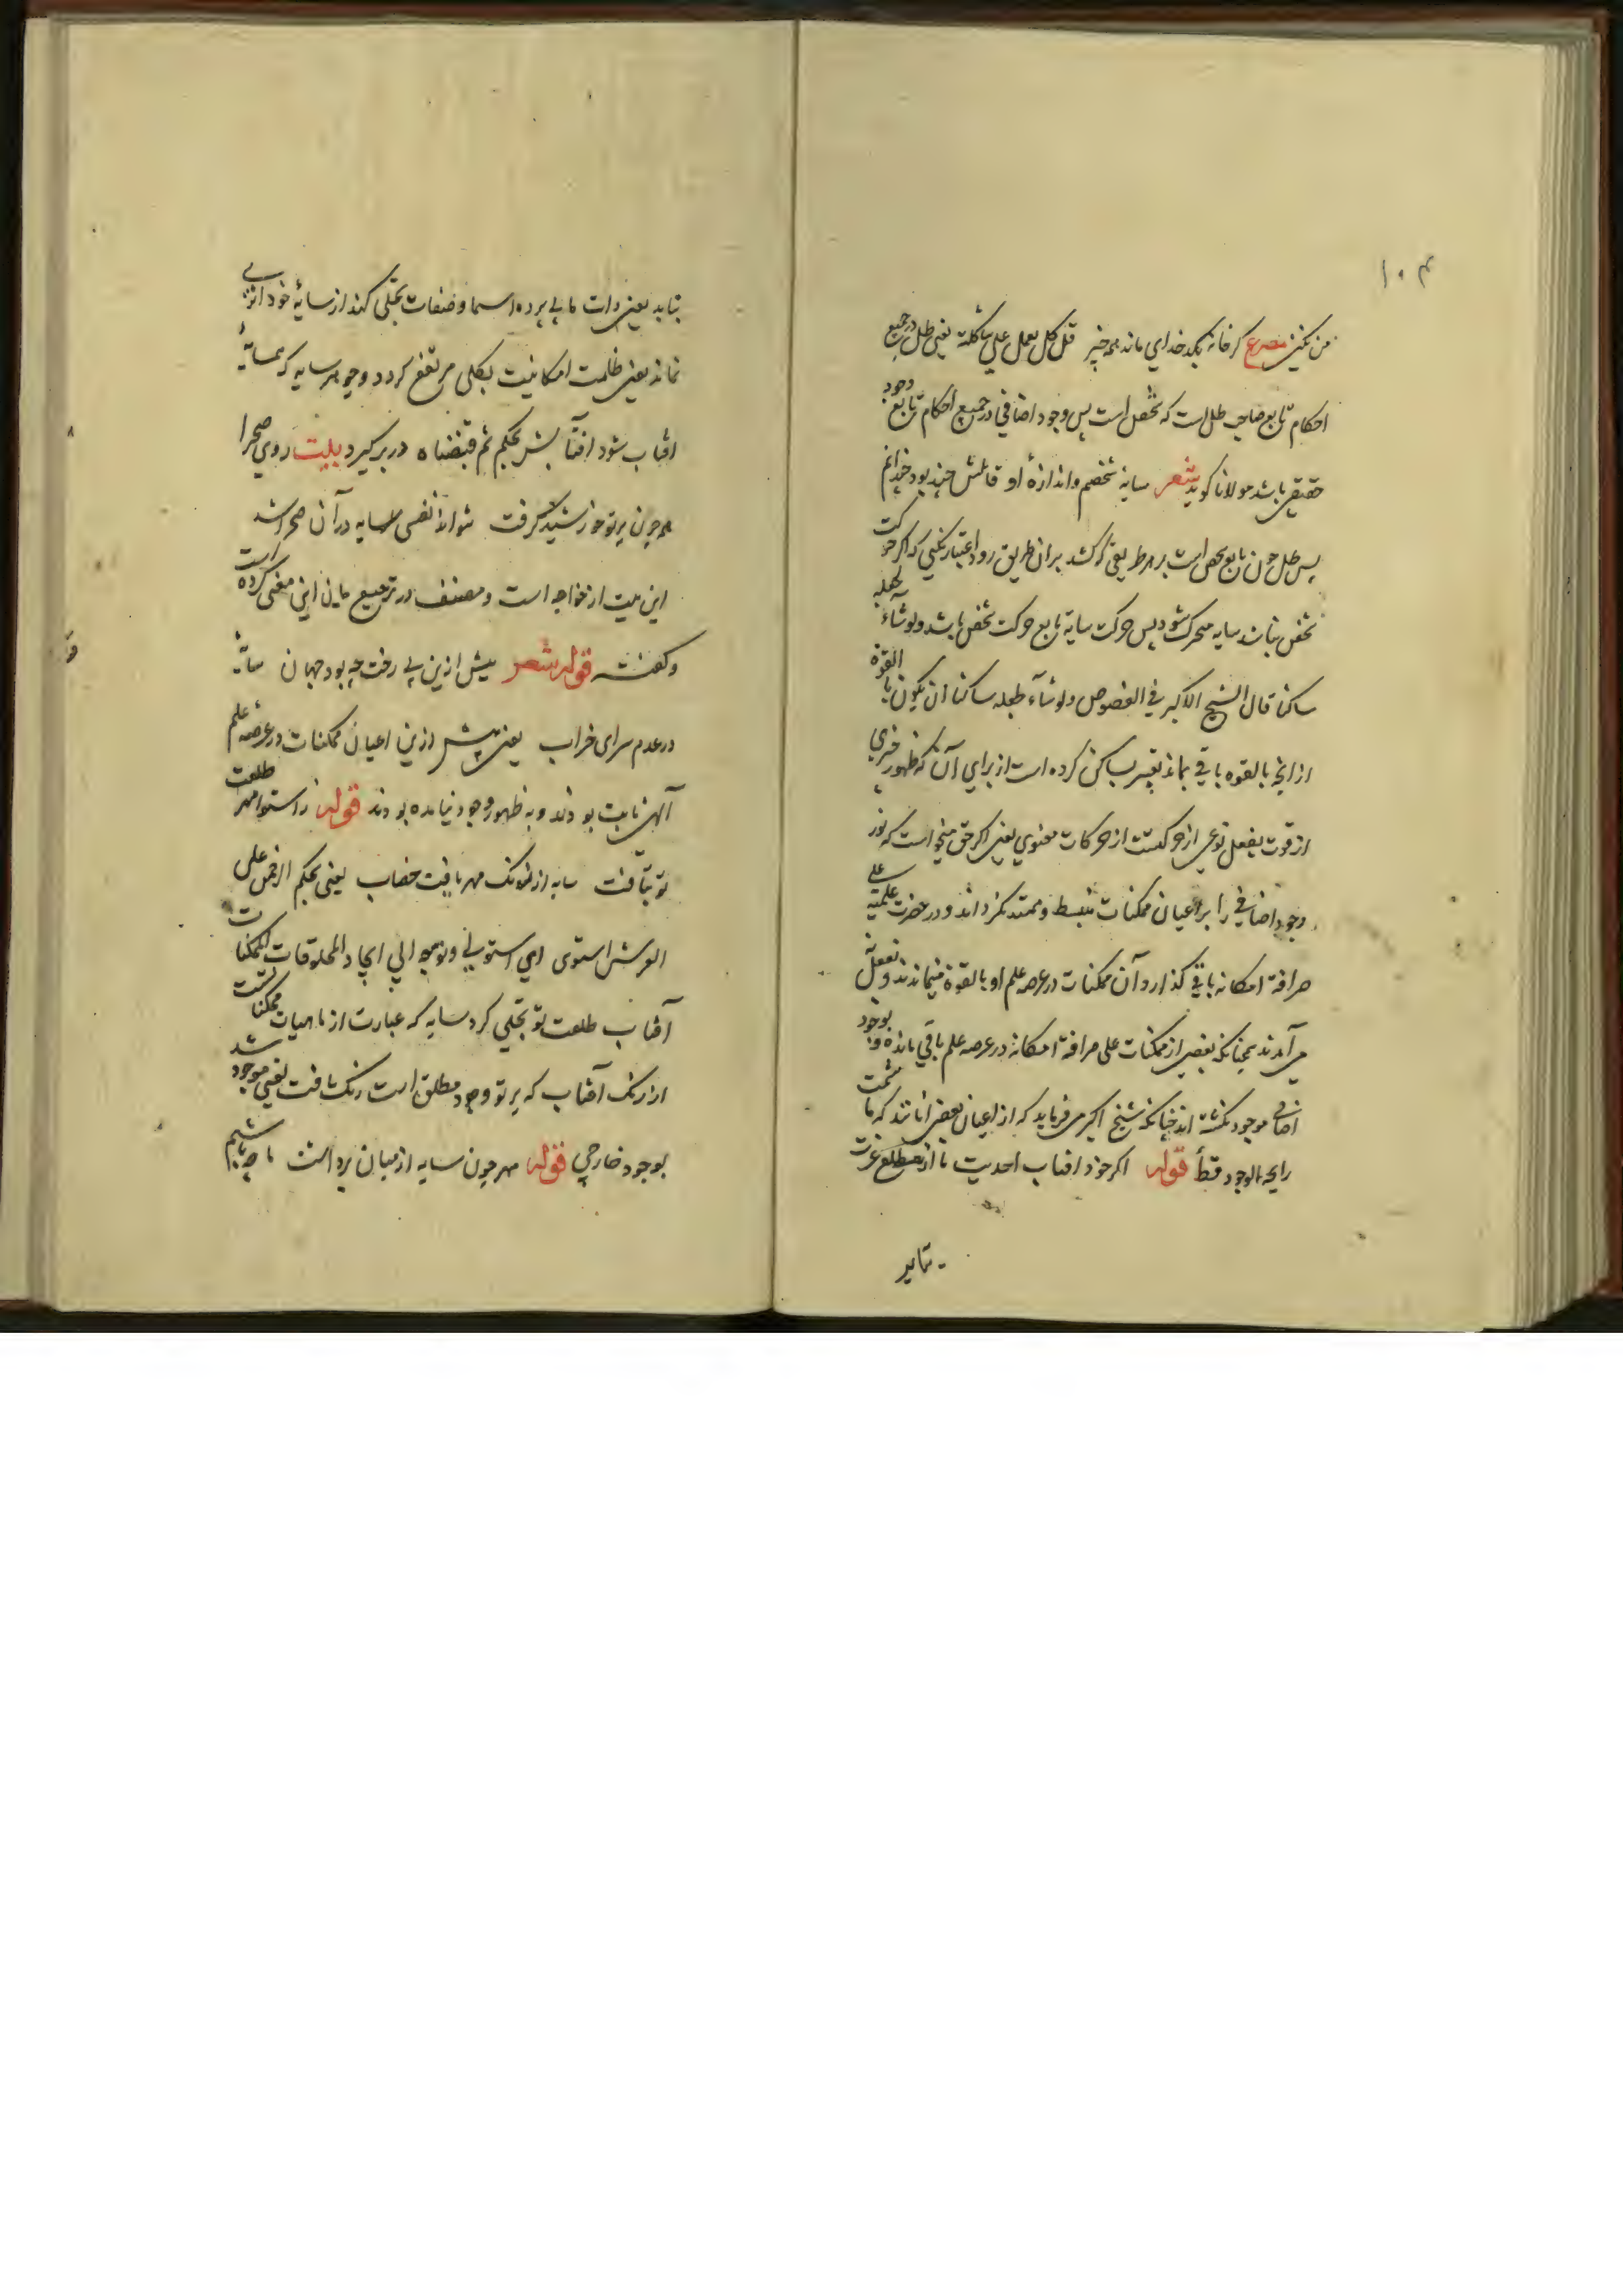 ۱۰۴
من نکنیم مصرع که خانه بکد خدای ماند همه چیز قل کل یعمل علی شاکلته یعنی ظل در جمیع
احکام تابع صاحب ظل است که شخص است پس وجود اضافی در جمیع احکام تابع وجود
حقیقی باشد مولانا کوید شعر سایۀ شخصم و اندازۀ او قامتش چند بود چندانم
پس ظل چون تابع شخص است بر هر طریقی که کشد بران طریق رود اعتبار نکنی که اکر حرکت
شخص نباشد سایه متحرک شود پس حرکت سایه تابع حرکت شخص باشد ولو شاء لجعله
ساکنا قال الشیخ الاکبر فی الفصوص ولو شآء لجعله ساکنا ان یکون بالقوة
از انچه بالقوه باقی بماند تعبیر بساکن کرده است از برای آن که ظهور چیزی
از قوت بفعل نوعی از حرکتست از حرکات معنوی یعنی اکر حق میخواست که نور
وجود اضافی را بر اعیان ممکنات منبسط و ممتد نکرداند و در حضرت علمیه علی
صرافة امکانه باقی کذارد آن ممکنات در عرصه علم او بالقوة میماندند و بفعل نه
می آمدند چنانکه بعضی از ممکنات علی صرافة امکانه در عرصه علم باقی مانده و بوجود
اضافی موجود نکشته اند چنانکه شیخ اکبر می فرماید که از اعیان بعضی آنانند که ما شمت
رایحة الوجود قط قوله اکر خود افتاب احدیت تا از مطلع عزت
بتابد
بتابد یعنی ذات ما بی پرده اسما و صفات تجلی کند از سایۀ خود اثری
نماند یعنی ظلمت امکانیت بکلی مرتفع کردد و چو هر سایه که همسایۀ
افتاب شود افتابش بحکم ثم قبضناه در بر کیرد بیت روی صحرا
همه چون پرتو خورشید کرفت نتواند نفسی سایه در آن صحرا شد
این بیت از خواجه است و مصنف در ترجیع ما این معنی کرده است
و کفته قوله شعر پیش ازین پی رخت چه بود جهان سایۀ
در عدم سرای خراب یعنی پیش ازین اعیان ممکنات در عرضه علم
آلهی ثابت بودند و به ظهور وجود نیامده بودند قوله ز استوا مهر طلعت
تو بتافت سایه از رنک مهر یافت خضاب یعنی بحکم الرحمن علی
العرش استوی ای استولی و توجه الی ایجاد المخلوقات الممکنات
آفتاب طلعت تو تجلی کرد سایه که عبارت از ماهیات ممکناتست
از رنک آفتاب که پرتو وجود مطلق است رنک یافت یعنی موجود شد
بوجود خارجی قوله مهر چون سایه از میان برداشت ما چه باشیم